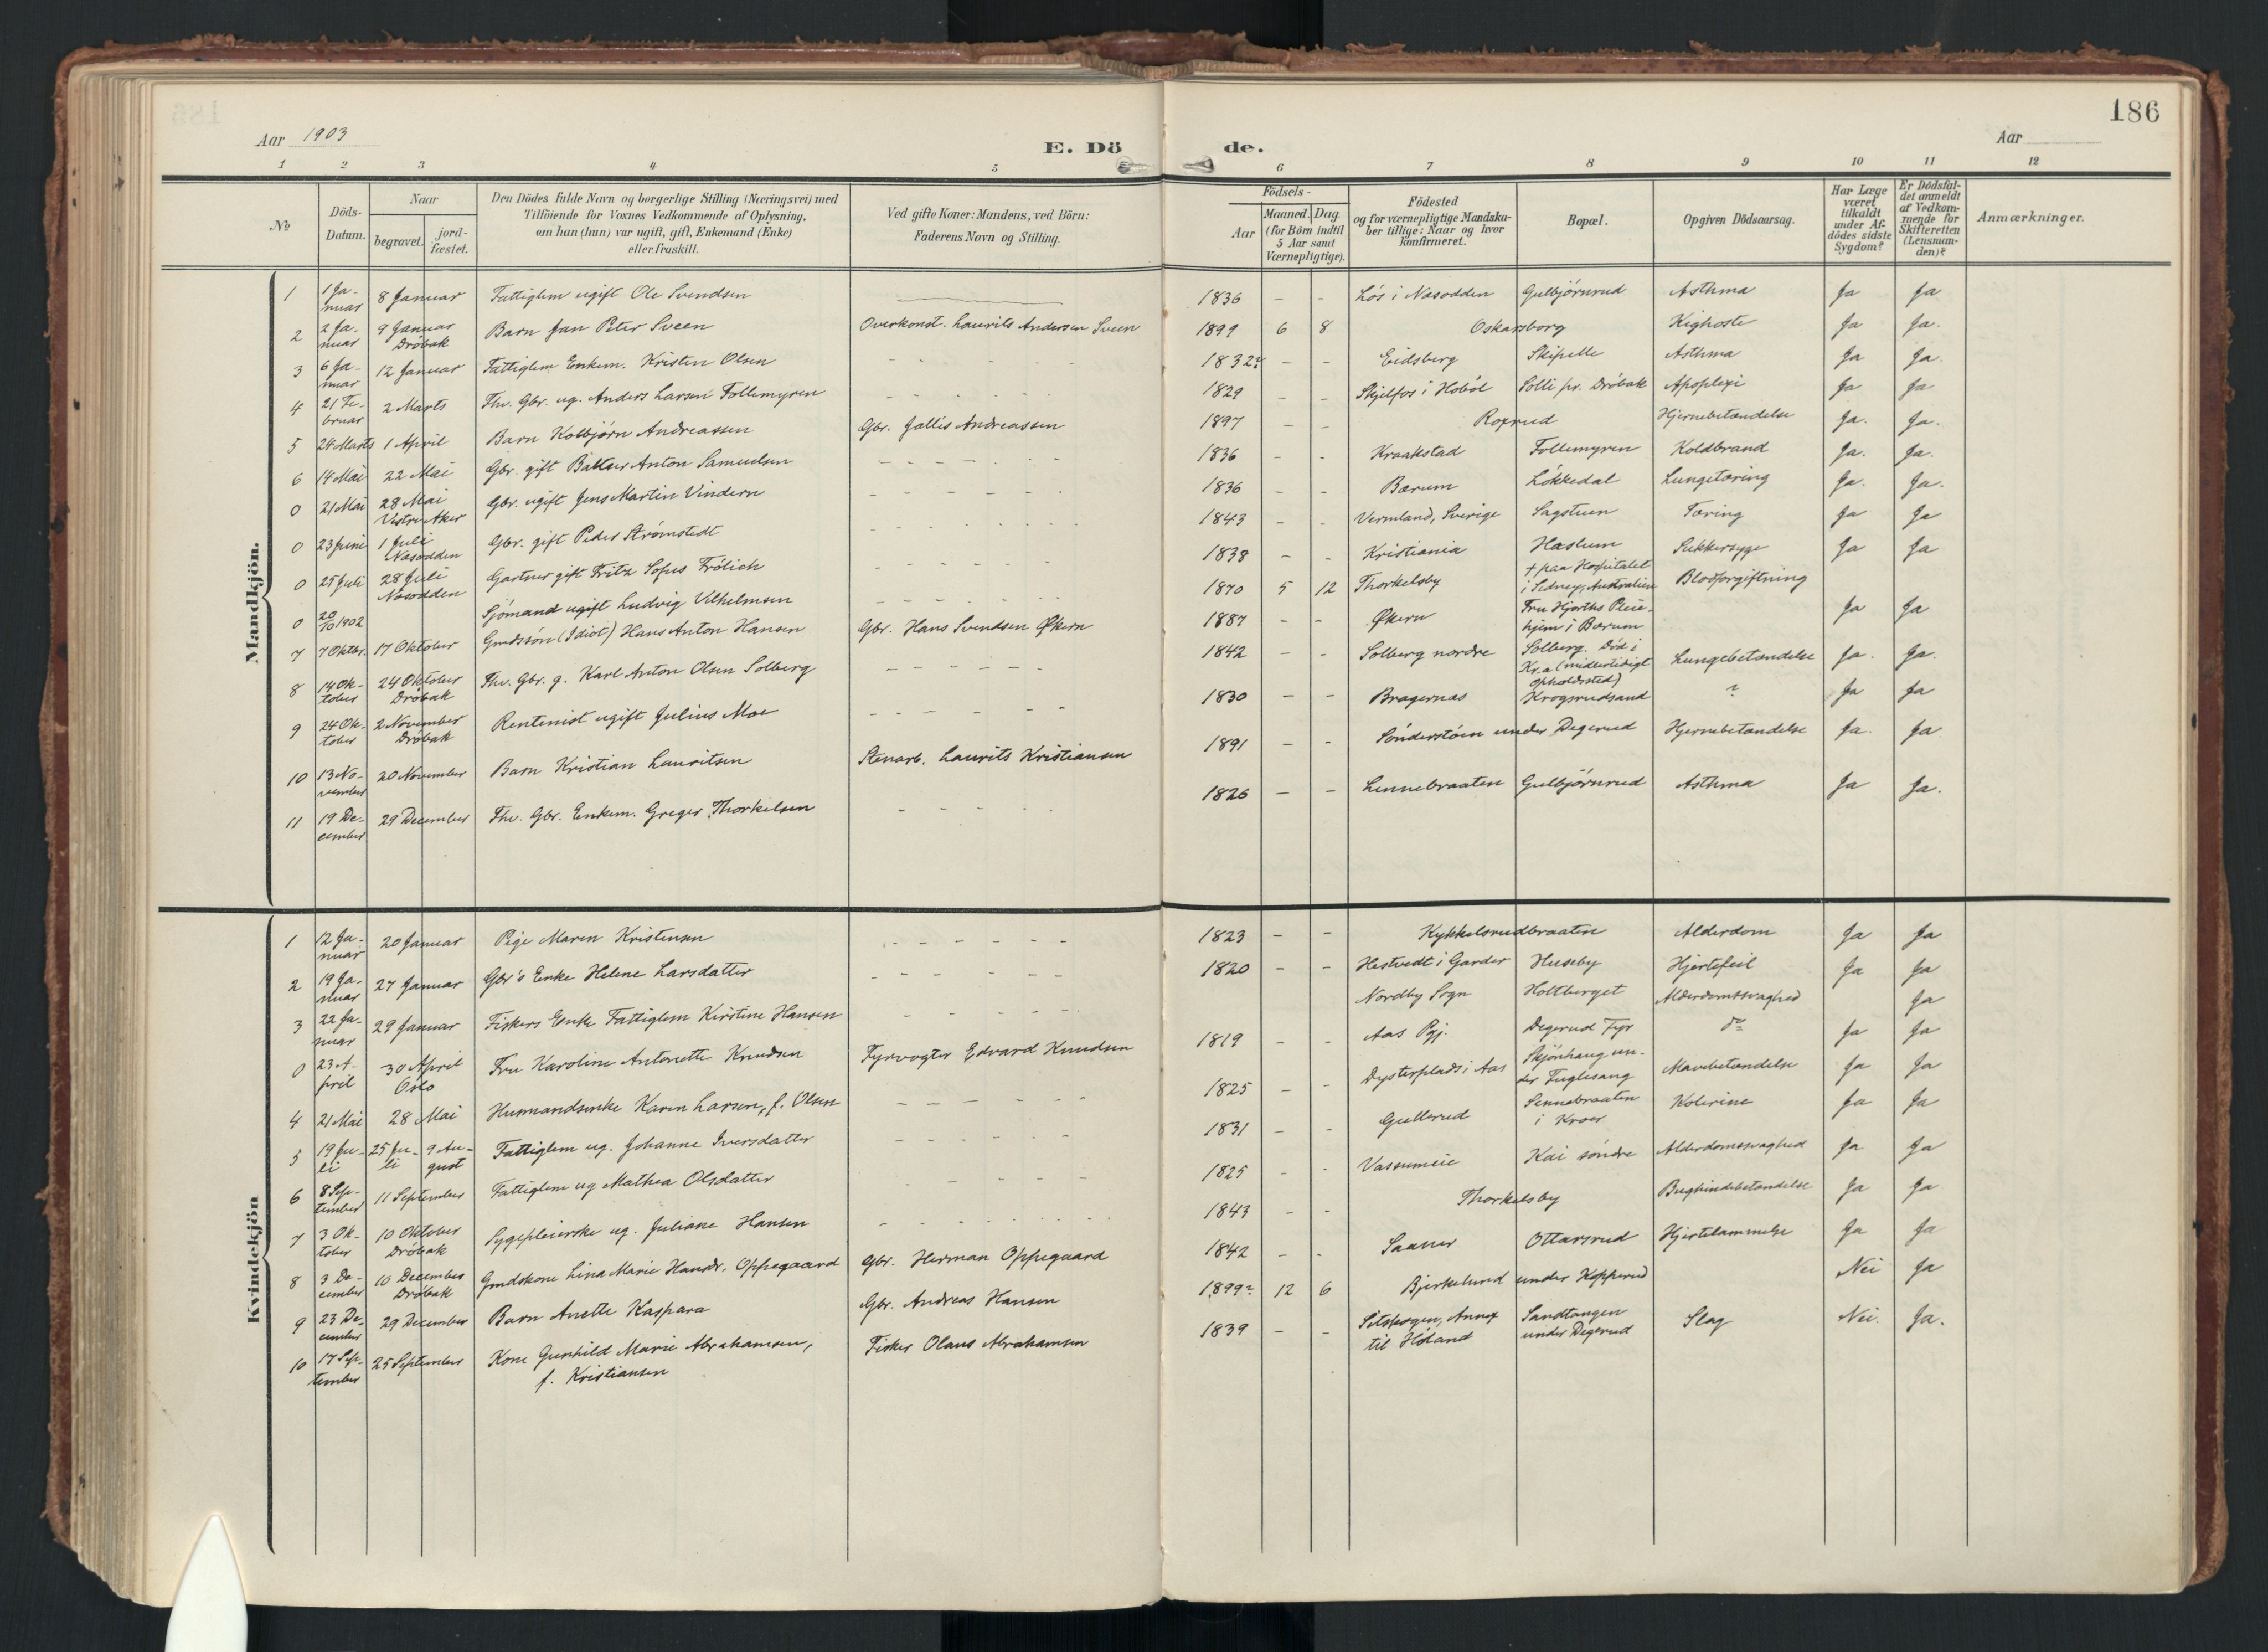 186
Aar 1903
E. Dö de.
Aar
1 2 3 4 5 6 7 8 9 10 11 12
No
Döds-Datum.
Naar
begravet. jord-fæstet.
Den Dödes fulde Navn og borgerlige Stilling (Næringsvei) med
Tilföiende for Voxnes Vedkommende af Oplysning,
om han (hun) var ugift, gift, Enkemand (Enke)
eller fraskilt.
Ved gifte Koner: Mandens, ved Börn:
Faderens Navn og Stilling.
Födsels-
Aar
Maaned. Dag.
(for Börn indtil
5 Aar samt
Værnepligtige).
Födested
og for værnepligtige Mandska-
ber tillige: Naar og hvor
konfirmeret.
Bopæl.
Opgiven Dödsaarsag.
Har Læge
været
tilkaldt
under Af-
dödes sidste
Sygdom?
Er Dödsfal-
det anmeldt
af Vedkom-
mende for
Skifteretten
(Lensman-
den)?
Anmærkninger.
Mandkjön.
1 1 Ja-nuar 8 Januar Fattiglem ugift Ole Svendsen 1836 - - Løs i Næsodden Gulbjørnrud Asthma Ja Ja
2 2 Ja-nuar 9 Januar Drøbak Barn Jan Peter Sveen Overkonst. Laurits Andersen Sveen 1899 6 8 Oskarsborg Kighoste Ja Ja.
3 6 Ja-nuar 12 Januar Fattiglem Enkem. Kristen Olsen - - - - - 1832? - - Eidsberg Skipelle Asthma Ja Ja.
4 21 Fe-bruar 2 Marts Fhv. Gbr. ug. Anders Larsen Follemyren - - - - - 1829 - - Skjelfos i Hobøl Solli pr. Drøbak Apoplexi Ja Ja
5 24 Marts 1 April Barn Kolbjørn Andreassen Gbr. Jallis Andreassen 1897 - - Roxrud Hjernebetændelse Ja. Ja.
6 14 Mai 22 Mai Gbr. gift Baltser Anton Samuelsen - - - - - - 1836 - - Kraakstad Follemyren Koldbrand Ja. Ja.
0 21 Mai 28 Mai Vestre Aker Gbr. ugift Jens Martin Vindern - - - - - - 1836 - - Bærum Løkkedal Lungetæring Ja. Ja.
0 23 Juni 1 Juli Næsodden Gbr. gift Peder Strømstedt - - - - - - 1843 - - Vermland, Sverige Sagstuen Tæring Ja Ja
0 25 Juli 28 Juli Næsodden Gartner gift Fritz Sofus Frölich - - - - - - 1838 - - Kristiania Haslum Sukkersyge Ja Ja
0 20/10 1902 Sjömand ugift Ludvig Vilhelmsen - - - - - - 1870 5 12 Thorkelsby + paa Hospitalet i Sidney, Australien Blodforgiftning
7 7 Oktbr. 17 Oktober Gmdssøn (Idiot) Hans Anton Hansen Gbr. Hans Svendsen Økern 1887 - - Økern Fru Hjorths Pleie-hjem i Bærum Ja Ja
8 14 Ok-tober 24 Oktober Drøbak Fhv. Gbr. g. Karl Anton Olsen Solberg - - - - - - 1842 - - Solberg nordre Solberg. Død i Kr.a (midlertidigt Opholdssted) Lungebetændelse Ja. Ja.
9 24 Ok-tober 2 November Drøbak Rentenist ugift Julius Moe - - - - - - 1830 - - Bragernæs Krogsrudsand ? Ja Ja
10 13 No-vember 20 November Barn Kristian Lauritsen Stenarb. Laurits Kristiansen 1891 - - Sønderstøen under Digerud Hjernebetændelse Ja. Ja
11 19 De-cember 29 December Fhv. Gbr. Enkem. Greger Thorkelsen - - - - - 1826 - - Lennebraaten Gulbjørnrud Asthma Ja Ja.
Kvindekjön
1 12 Ja-nuar 20 Januar Pige Maren Kristensen - - - - - - 1823 - - Kykkelsrudbraaten Alderdom Ja Ja
2 19 Ja-nuar 27 Januar Gbr's Enke Helene Larsdatter - - - - - - 1820 - - Hestvedt i Garder Huseby Hjertefeil Ja Ja
3 22 Ja-nuar 29 Januar Fiskers Enke Fattiglem Kirstine Hansen - - - - - - Nordby Sogn Holtberget Alderdomssvaghed Ja
0 23 A-pril 30 April Oslo Fru Karoline Antonette Knudsen Fyrvogter Edvard Knudsen 1819 - - Aas Pgj. Digerud Fyr do Ja Ja
4 21 Mai 28 Mai Husmandsenke Karen Larsen, f. Olsen - - - - - - 1825 - - Dysterplads i Aas Skjønhaug un-der Fuglesang Mavebetændelse Ja Ja
5 19 Ju-li 25 Ju-li 9 Au-gust Fattiglem ug. Johanne Iversdatter - - - - - - 1831 - - Gullerud Lennebraaten i Kroer Kolerine Ja Ja
6 8 Sep-tember 11 September Fattiglem ug Mathea Olsdatter - - - - - 1825 - - Vassumeie Kai søndre Alderdomssvaghed Ja Ja
7 3 Ok-tober 10 Oktober Drøbak Sygepleierske ug. Juliane Hansen - - - - - - 1843 - - Thorkelsby Bughindebetændelse Ja Ja
8 3 De-cember 10 December Drøbak Gmdskone Lina Marie Hansdr. Oppegaard Gbr. Herman Oppegaard 1842 - - Saaner Ottarsrud Hjertelammelse Ja Ja
9 23 De-cember 29 December Barn Anette Kaspara Gbr. Andreas Hansen 1899? 12 6 Bjerkelund under Kopperud Nei Ja
10 17 Sep-tember 25 September Kone Gunhild Marie Abrahamsen, f. Kristiansen Fisker Olaus Abrahamsen 1839 - - Setskogen, Annex til Høland Sandtangen under Digerud Slag Nei. Ja.